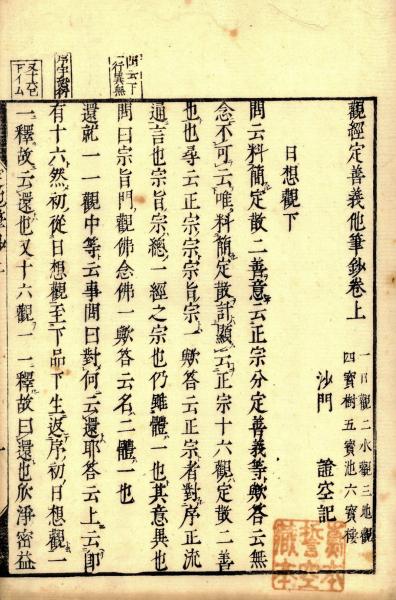 觀經定善義他筆鈔卷上
一日觀二水觀三地觀
四寶樹五寶池六寶樓
沙門　證空記
日想觀下
問云料簡定散二善意云正宗分定善義等歟答云無
念不可云唯料簡定散計顯云正宗十六觀定散二善
也也尋云正宗宗宗旨宗一歟答云正宗者對序正流
通言也宗旨宗總一經之宗也仍雖體一也其意異也
問曰宗旨門觀佛念佛一歟答云名二體一也
還就一一觀中等云事問曰對何云還耶答云上云即
有十六然初從日想觀至下品下生返序初日想觀一
一釋故云還也又十六觀一一釋故曰還也欣淨密益